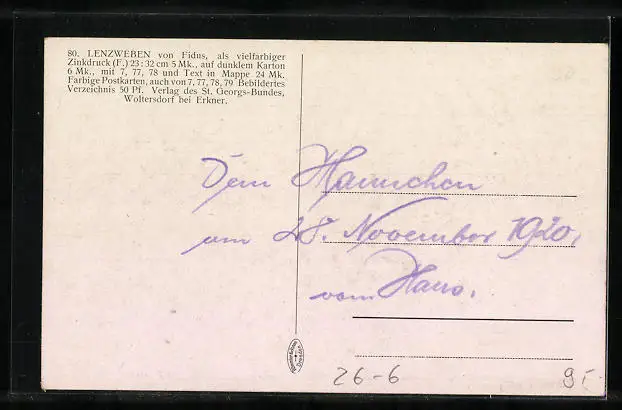 80. LENZWEBEN von Fidus, als vielfarbiger
Zinkdruck (F.) 23 : 32 cm 5 Mk., auf dunklem Karton
6 Mk., mit 7, 77, 78 und Text in Mappe 24 Mk.
Farbige Postkarten, auch von 7, 77, 78, 79 Bebildertes
Verzeichnis 50 Pf. Verlag des St. Georgs-Bundes,
Woltersdorf bei Erkner.
Dem Hannchen
am 28. November 1920,
vom Hans.
26-6